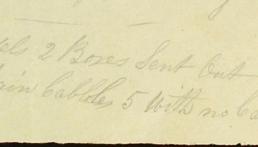 els 2 Boxes Sent Out
ain Cables 5 With no Ca